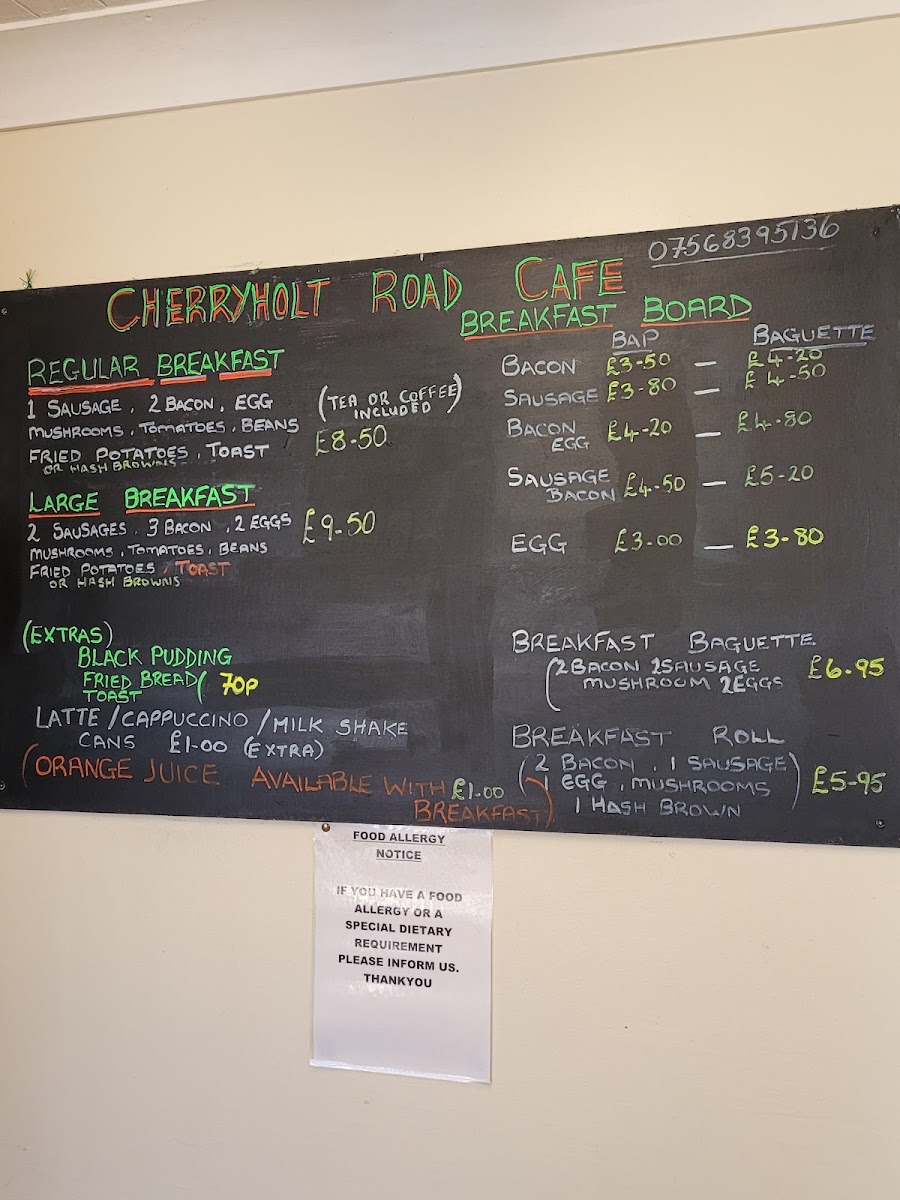 07568395136
CHERRYHOLT ROAD CAFE
BREAKFAST BOARD
REGULAR BREAKFAST
1 SAUSAGE, 2 BACON, EGG
MUSHROOMS, TOMATOES, BEANS
FRIED POTATOES, TOAST
OR HASH BROWNS
(TEA OR COFFEE
INCLUDED)
£8-50
LARGE BREAKFAST
2 SAUSAGES, 3 BACON, 2 EGGS
MUSHROOMS, TOMATOES, BEANS
FRIED POTATOES, TOAST
OR HASH BROWNS
£9-50
(EXTRAS)
BLACK PUDDING
FRIED BREAD
TOAST
( 70P
LATTE/CAPPUCCINO/MILK SHAKE
CANS £1-00 (EXTRA)
(ORANGE JUICE AVAILABLE WITH £1.00
BREAKFAST)
BAP BAGUETTE
BACON £3-50 — £4-20
SAUSAGE £3-80 — £4-50
BACON
EGG £4-20 — £4-80
SAUSAGE
BACON £4-50 — £5-20
EGG £3-00 — £3-80
BREAKFAST BAGUETTE
(2 BACON 2 SAUSAGE
MUSHROOM 2 EGGS
£6.95
BREAKFAST ROLL
(2 BACON, 1 SAUSAGE)
1 EGG, MUSHROOMS
1 HASH BROWN
£5-95
FOOD ALLERGY
NOTICE
IF YOU HAVE A FOOD
ALLERGY OR A
SPECIAL DIETARY
REQUIREMENT
PLEASE INFORM US.
THANKYOU